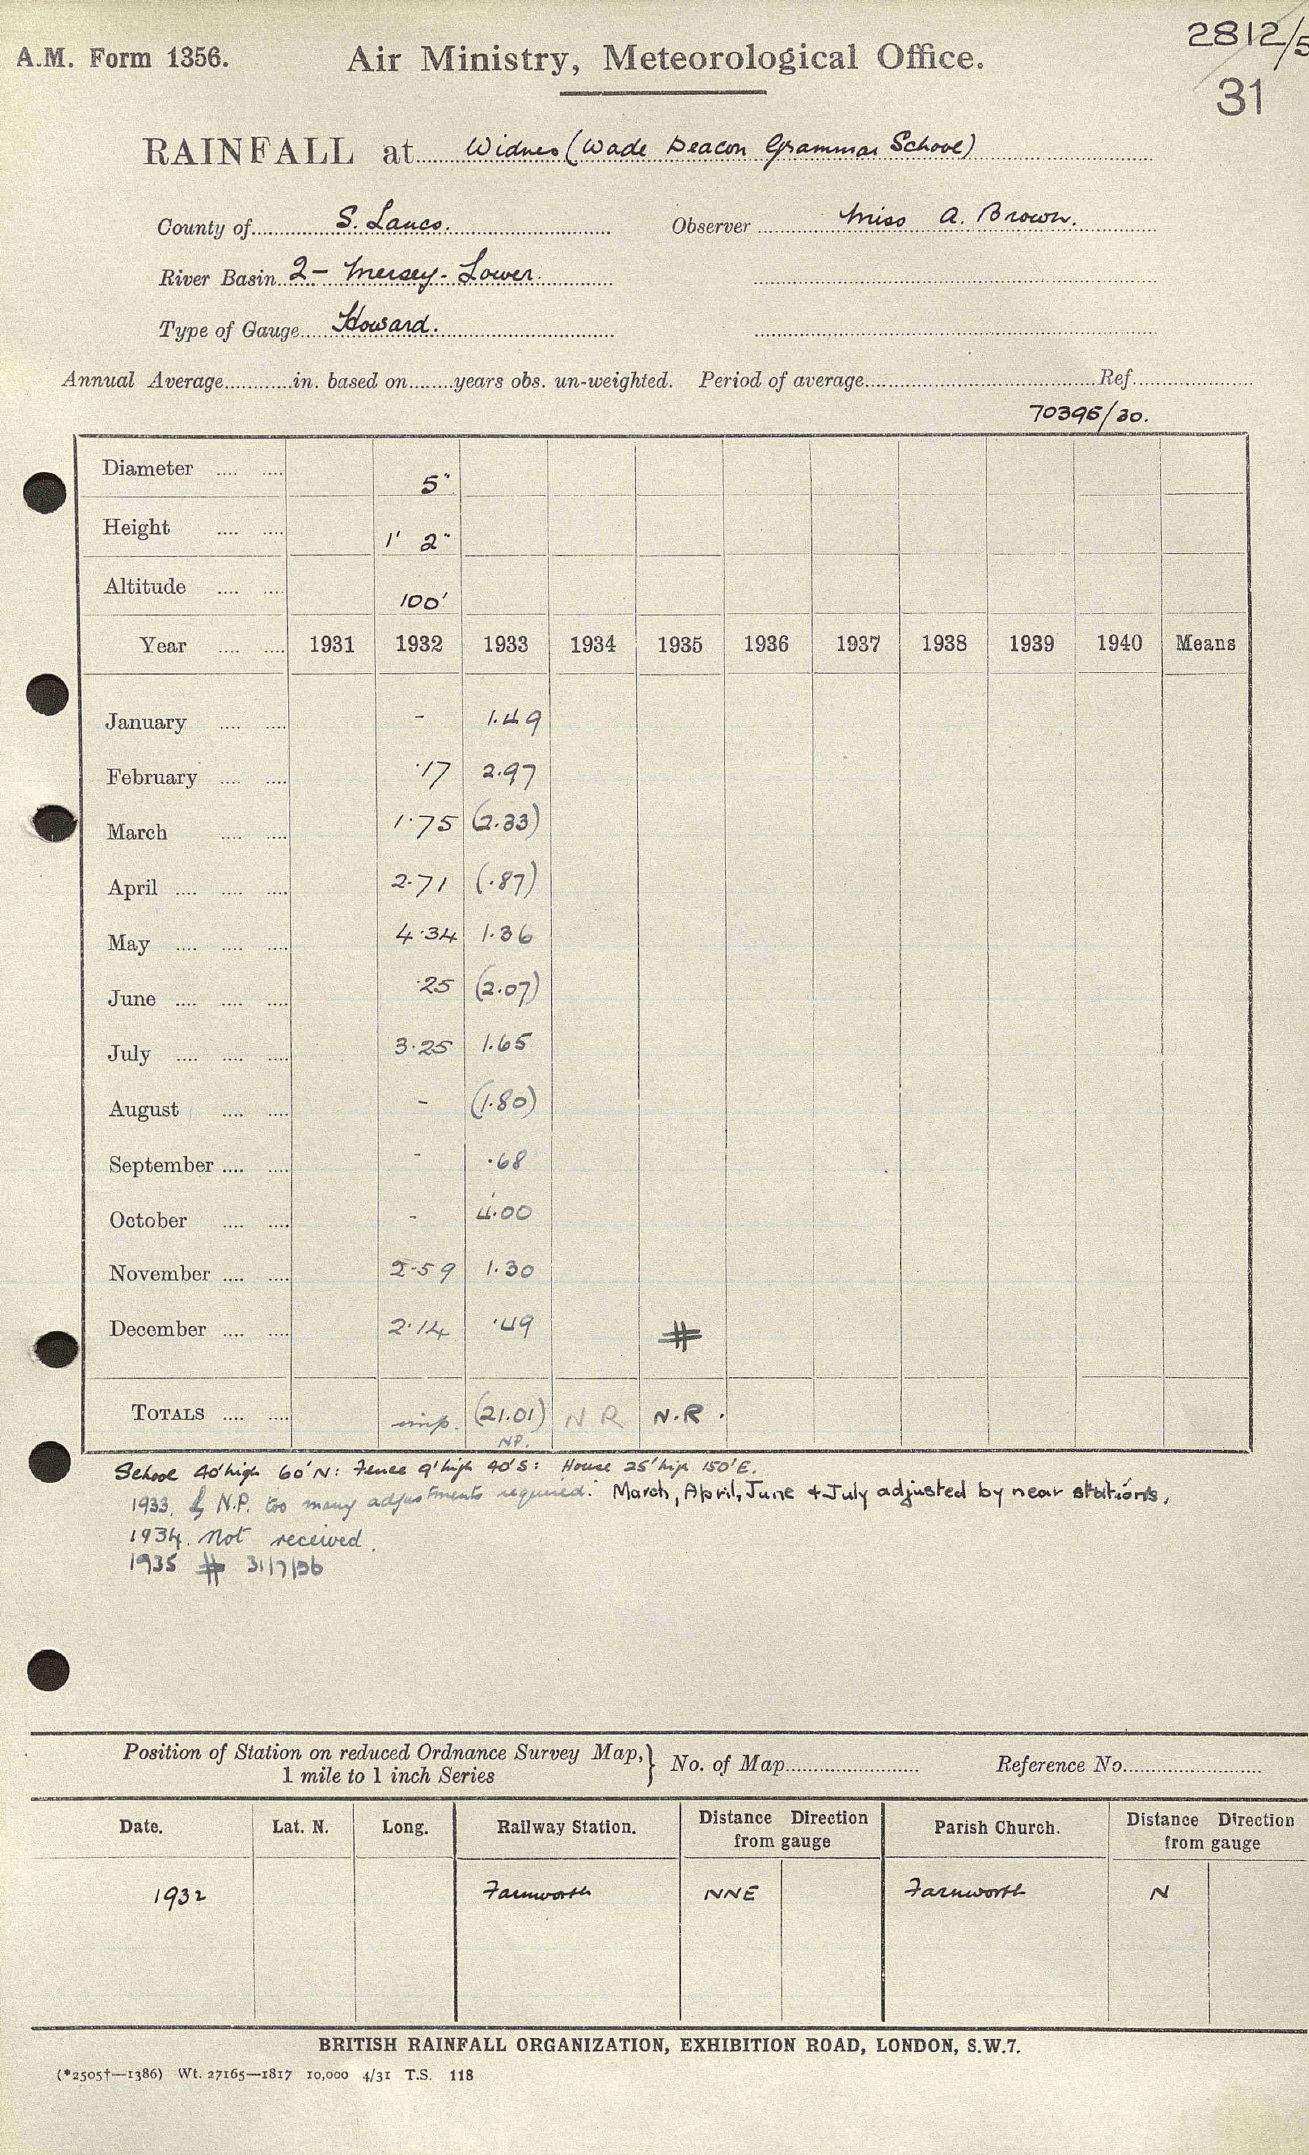 2812/5
A.M. Form 1356. Air Ministry, Meteorological Office.
31
RAINFALL at Widnes (Wade Deacon Grammar School)
County of S. Lancs. Observer Miss A. Brown.
River Basin 2 - Mersey - Lower.
Type of Gauge Howard.
Annual Average in. based on years obs. un-weighted. Period of average Ref.
70395/30.
Diameter 5"
Height 1' 2"
Altitude 100'
Year 1931 1932 1933 1934 1935 1936 1937 1938 1939 1940 Means
January - 1.49
February .17 2.97
March 1.75 (2.33)
April 2.71 (.87)
May 4.34 1.36
June .25 (2.07)
July 3.25 1.65
August - (1.80)
September - .68
October - 4.00
November 2.59 1.30
December 2.14 .49 #
TOTALS imp. (21.01) N R N.R.
NP.
School 40' high 60' N: Fence 9' high 90' S: House 25' high 150' E.
1933. N.P. too many adjustments required. March, April, June & July adjusted by near stations.
1934. Not received.
1935 # 31/7/36
Position of Station on reduced Ordnance Survey Map, } No. of Map Reference No.
1 mile to 1 inch Series
Date. Lat. N. Long. Railway Station. Distance Direction from gauge Parish Church. Distance Direction from gauge
1932 Farnworth NNE Farnworth N
BRITISH RAINFALL ORGANIZATION, EXHIBITION ROAD, LONDON, S.W.7.
(*2505†—1386) Wt. 27165—1817 10,000 4/31 T.S. 118